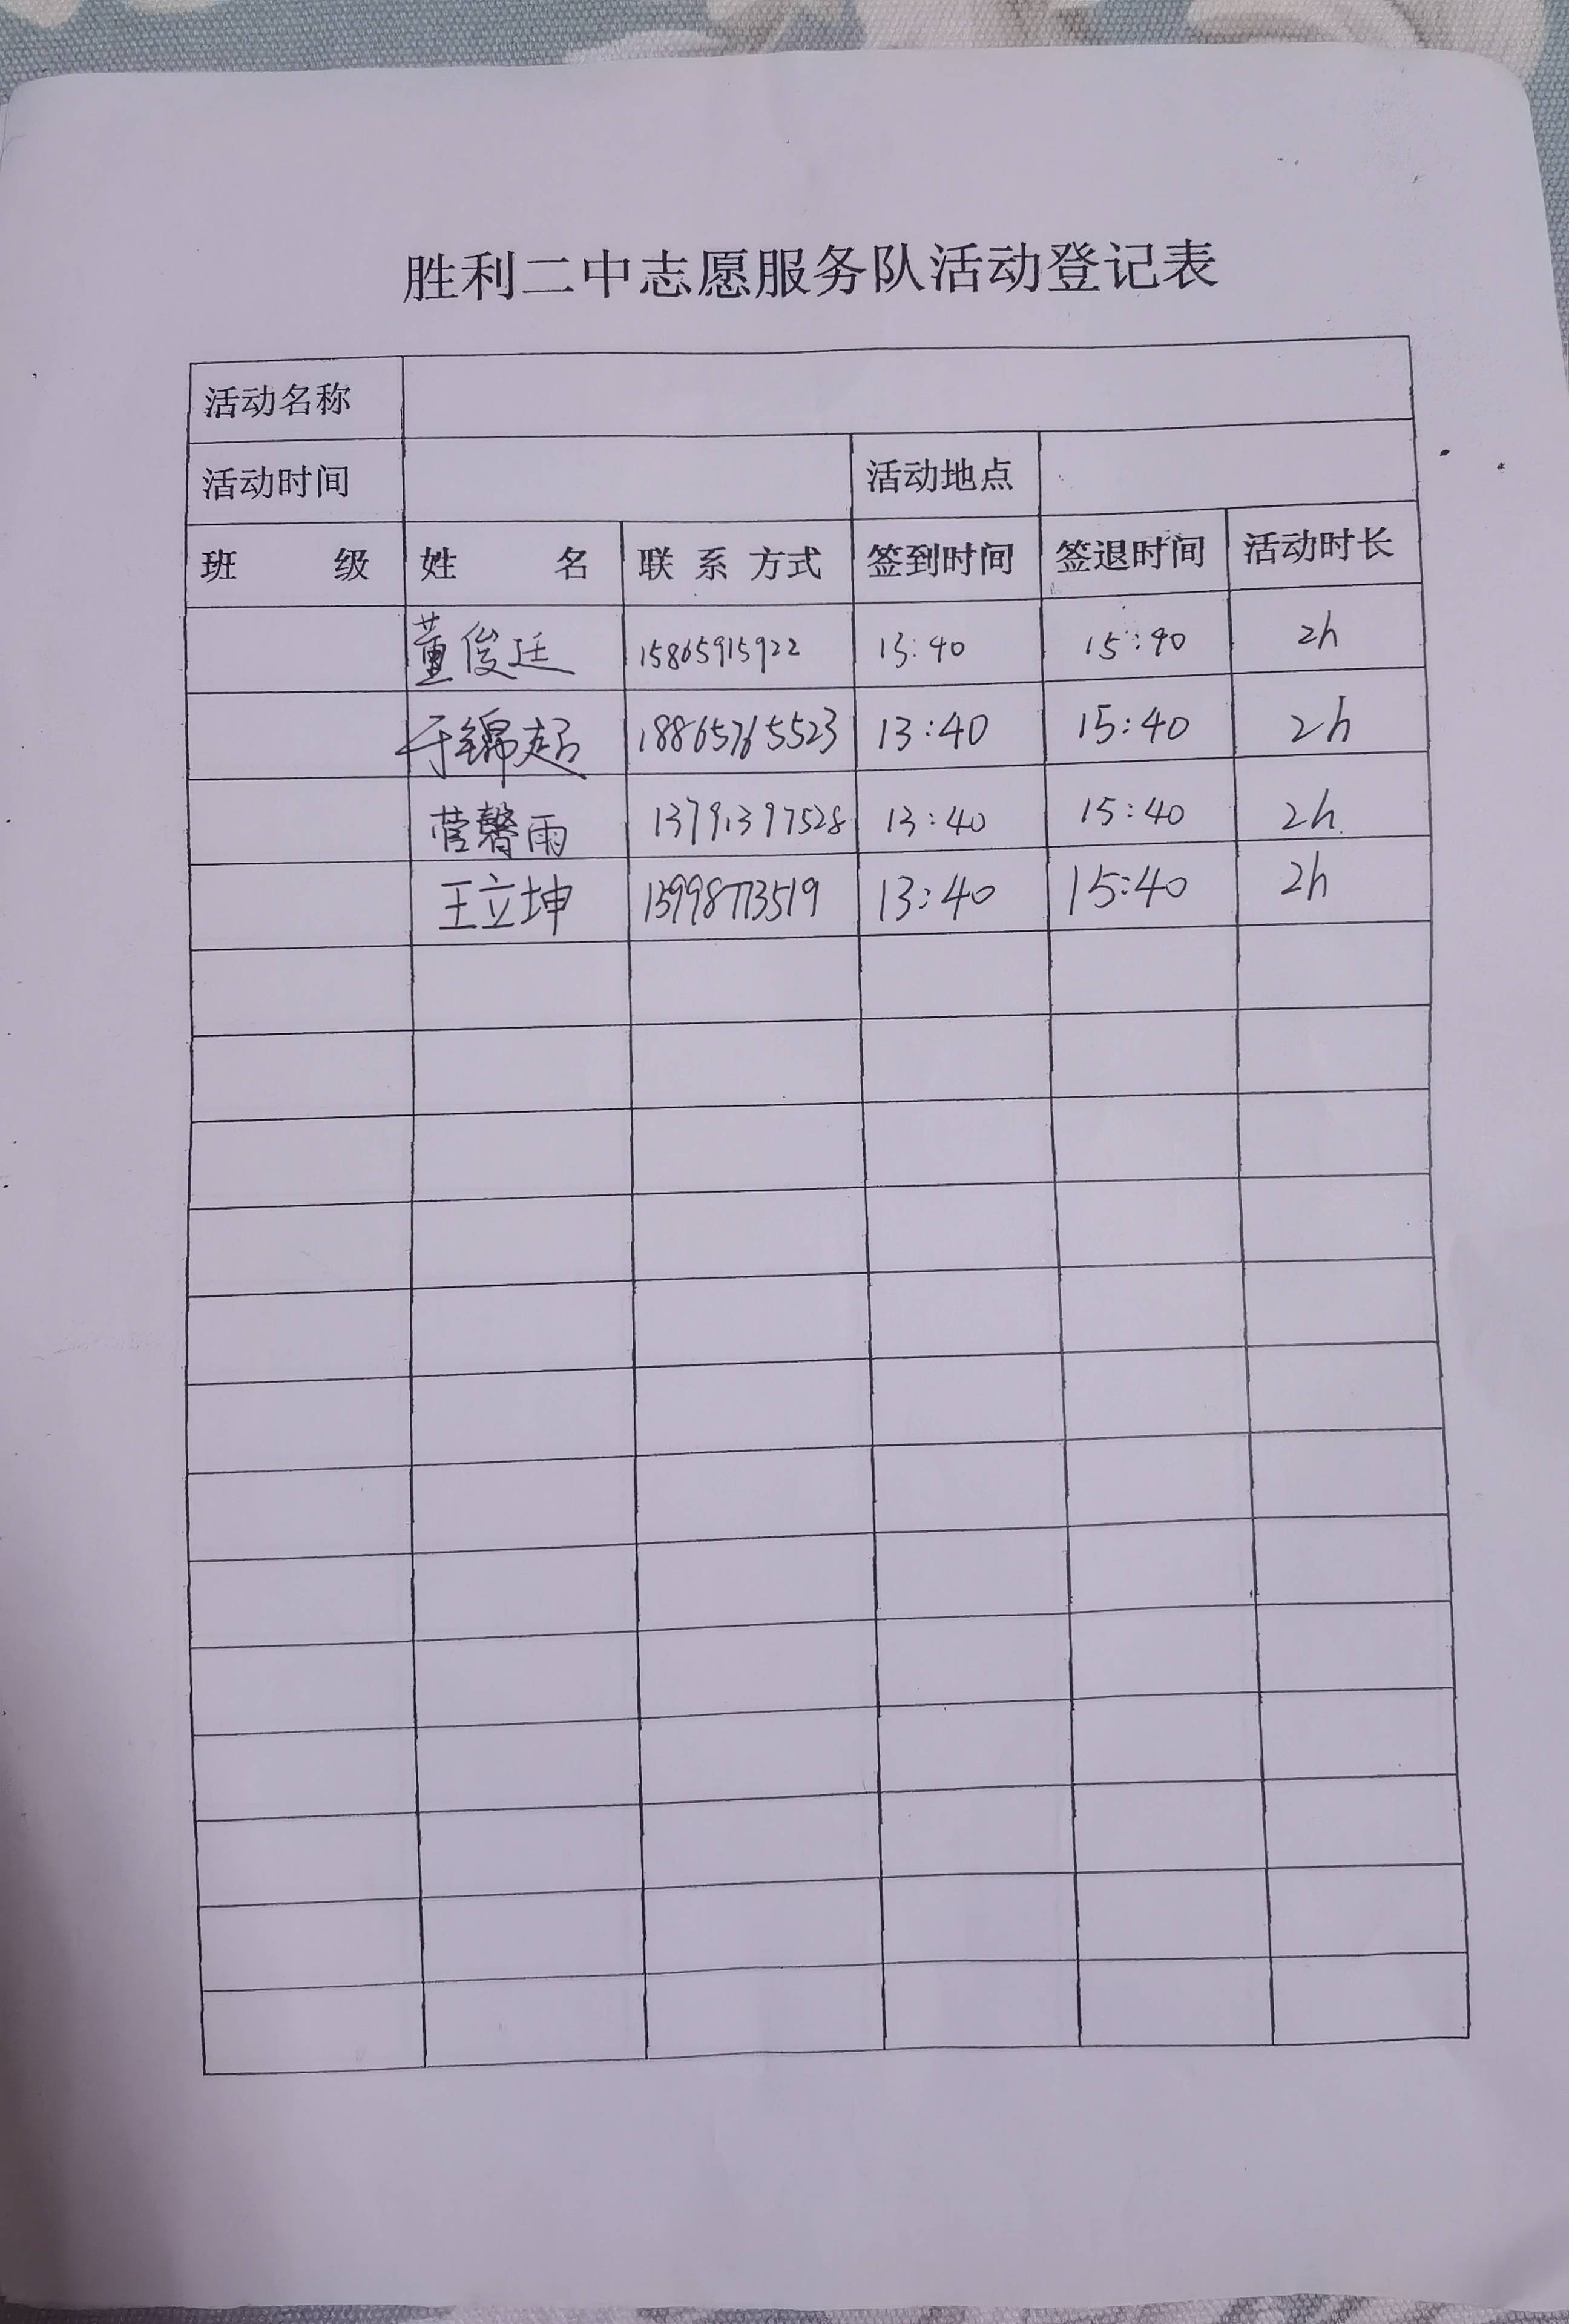 胜利二中志愿服务队活动登记表
活动名称
活动时间 活动地点
班 级 姓 名 联系方式 签到时间 签退时间 活动时长
董俊廷 15865915922 13:40 15:40 2h
于锦超 18865765523 13:40 15:40 2h
菅馨雨 13791397528 13:40 15:40 2h
王立坤 13998773519 13:40 15:40 2h